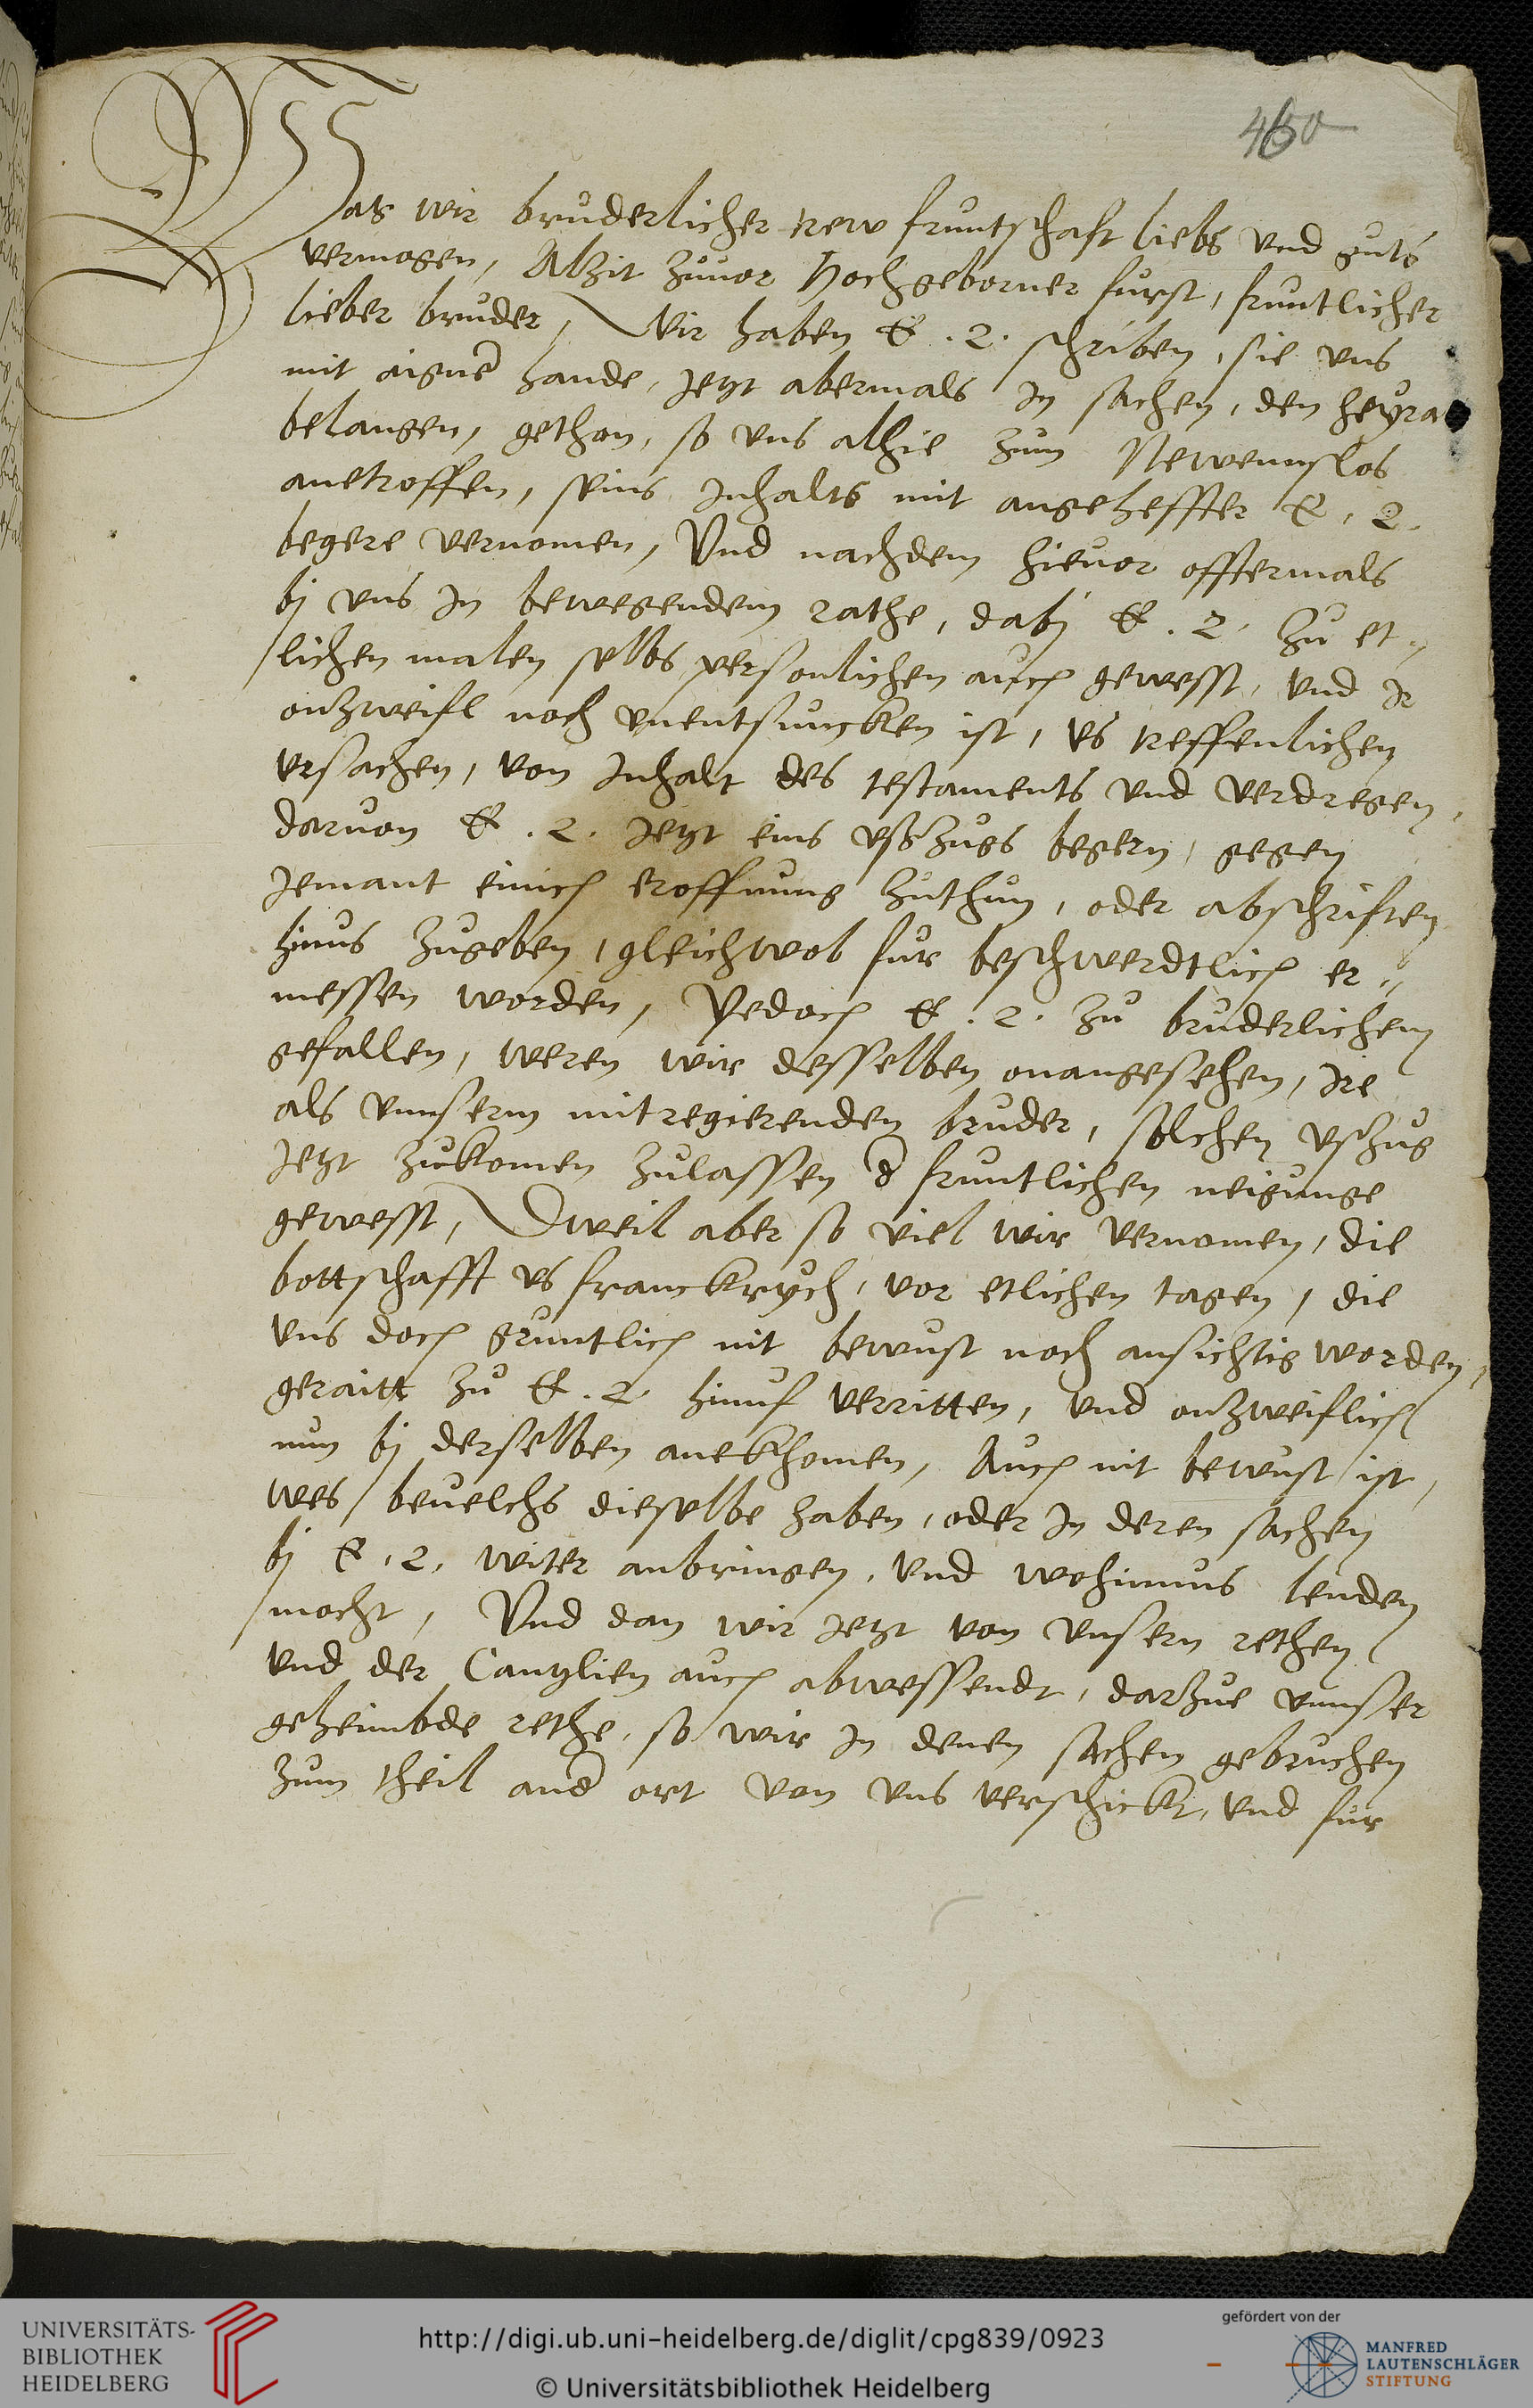 460
Was wir bruderlicher trew fruntschafft liebs vnd guts
vermogen, Alzit zuuor Hochgeborner furst, fruntlicher
lieber bruder, Wir haben E. L. schriben, sie vns
mit aigner hande, Jetzt abermals in sachen, den heyrat
belangen, gethon, so vns alhie zum Newennslos
anetroffen, seins Jnhalts mit angeheffter E. L.
begere vernomen, Vnd nachdem hieuor offtermals
bj vns in bewegendem rathe, dabj E. L. zu et-
lichen malen selbs personlichen auch gewesst, vnd Ir
onzweifl noch vnentsuncken ist, vs treffenlichen
vrsachen, von Jnhalt des testaments vnd verdregen,
daruon E. L. Jetzt eins vßzugs begern, gegen
Jemant einich eroffnung zuthun, oder abschrifften
hinus zugeben, gleichwol fur beschwerdtlich er-
messen worden, Yedoch E. L. zu bruderlichem
gefallen, weren wir desselben onangesehen, Ire
als vnnserm mitregierenden bruder, solchen vszug
Jetzt zukomen zulassen der fruntlichen neigunge
gewesst, Dweil aber so viel wir vernomen, die
bottschafft vs franckrych, vor etlichen tagen, die
vns doch gruntlich nit bewust noch ansichtig worden,
geraitt zu E. L. hinuf verritten, vnd onzweiflich
nun bj derselben anekhomen, Auch nit bewust ist,
wes beuelchs dieselbe haben, oder in deren sachen
bj E. L. witer anbringen, vnd wohinnus lenden
mocht, Vnd dan wir Jetzt von vnsern rethen
vnd der Cantzlien auch abwessendt, darzue vnnser
geheimbde rethe, so wir in denen sachen gebruchen
zum theil ander ort von vns verschickt, vnd fur
UNIVERSITÄTS-
BIBLIOTHEK
HEIDELBERG
http://digi.ub.uni-heidelberg.de/diglit/cpg839/0923
© Universitätsbibliothek Heidelberg
gefördert von der
MANFRED
LAUTENSCHLÄGER
STIFTUNG